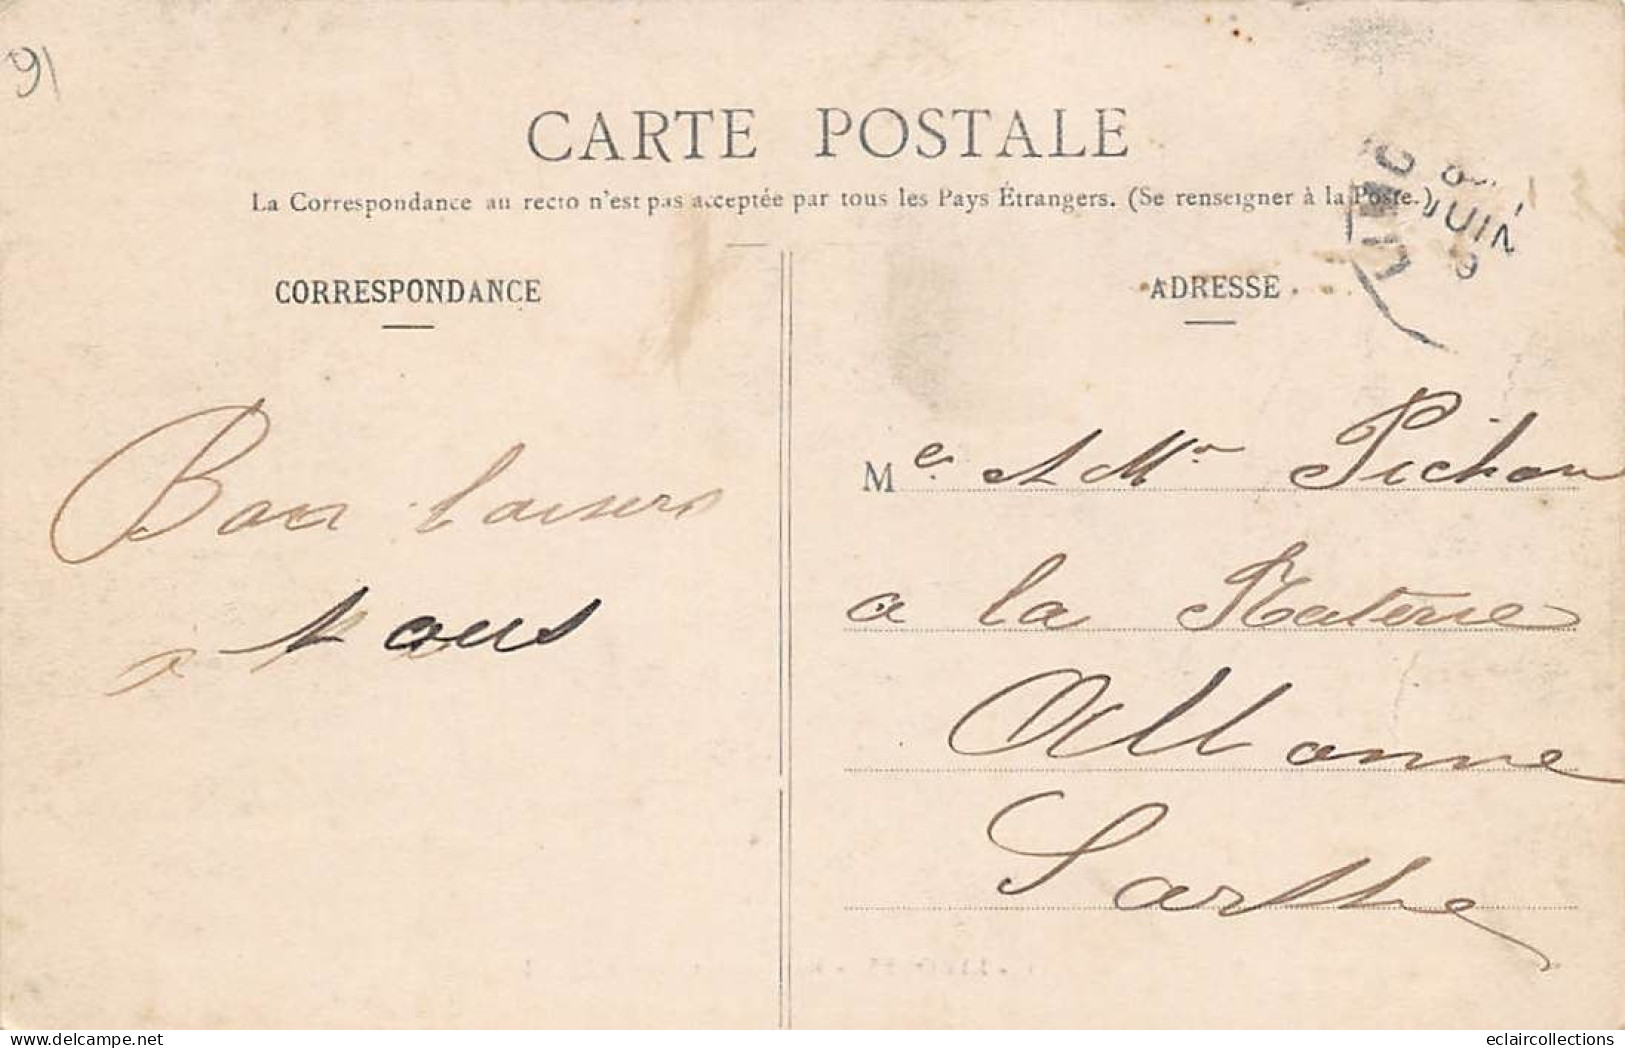 91
CARTE POSTALE
La Correspondance au recto n'est pas acceptée par tous les Pays Étrangers. (Se renseigner à la Poste.)
CORRESPONDANCE
ADRESSE
JUIN
Bon baisers
a tous
Me et Mr Pichon
a la Raterie
Allonne
Sarthe
delcampe.net
eclaircollections